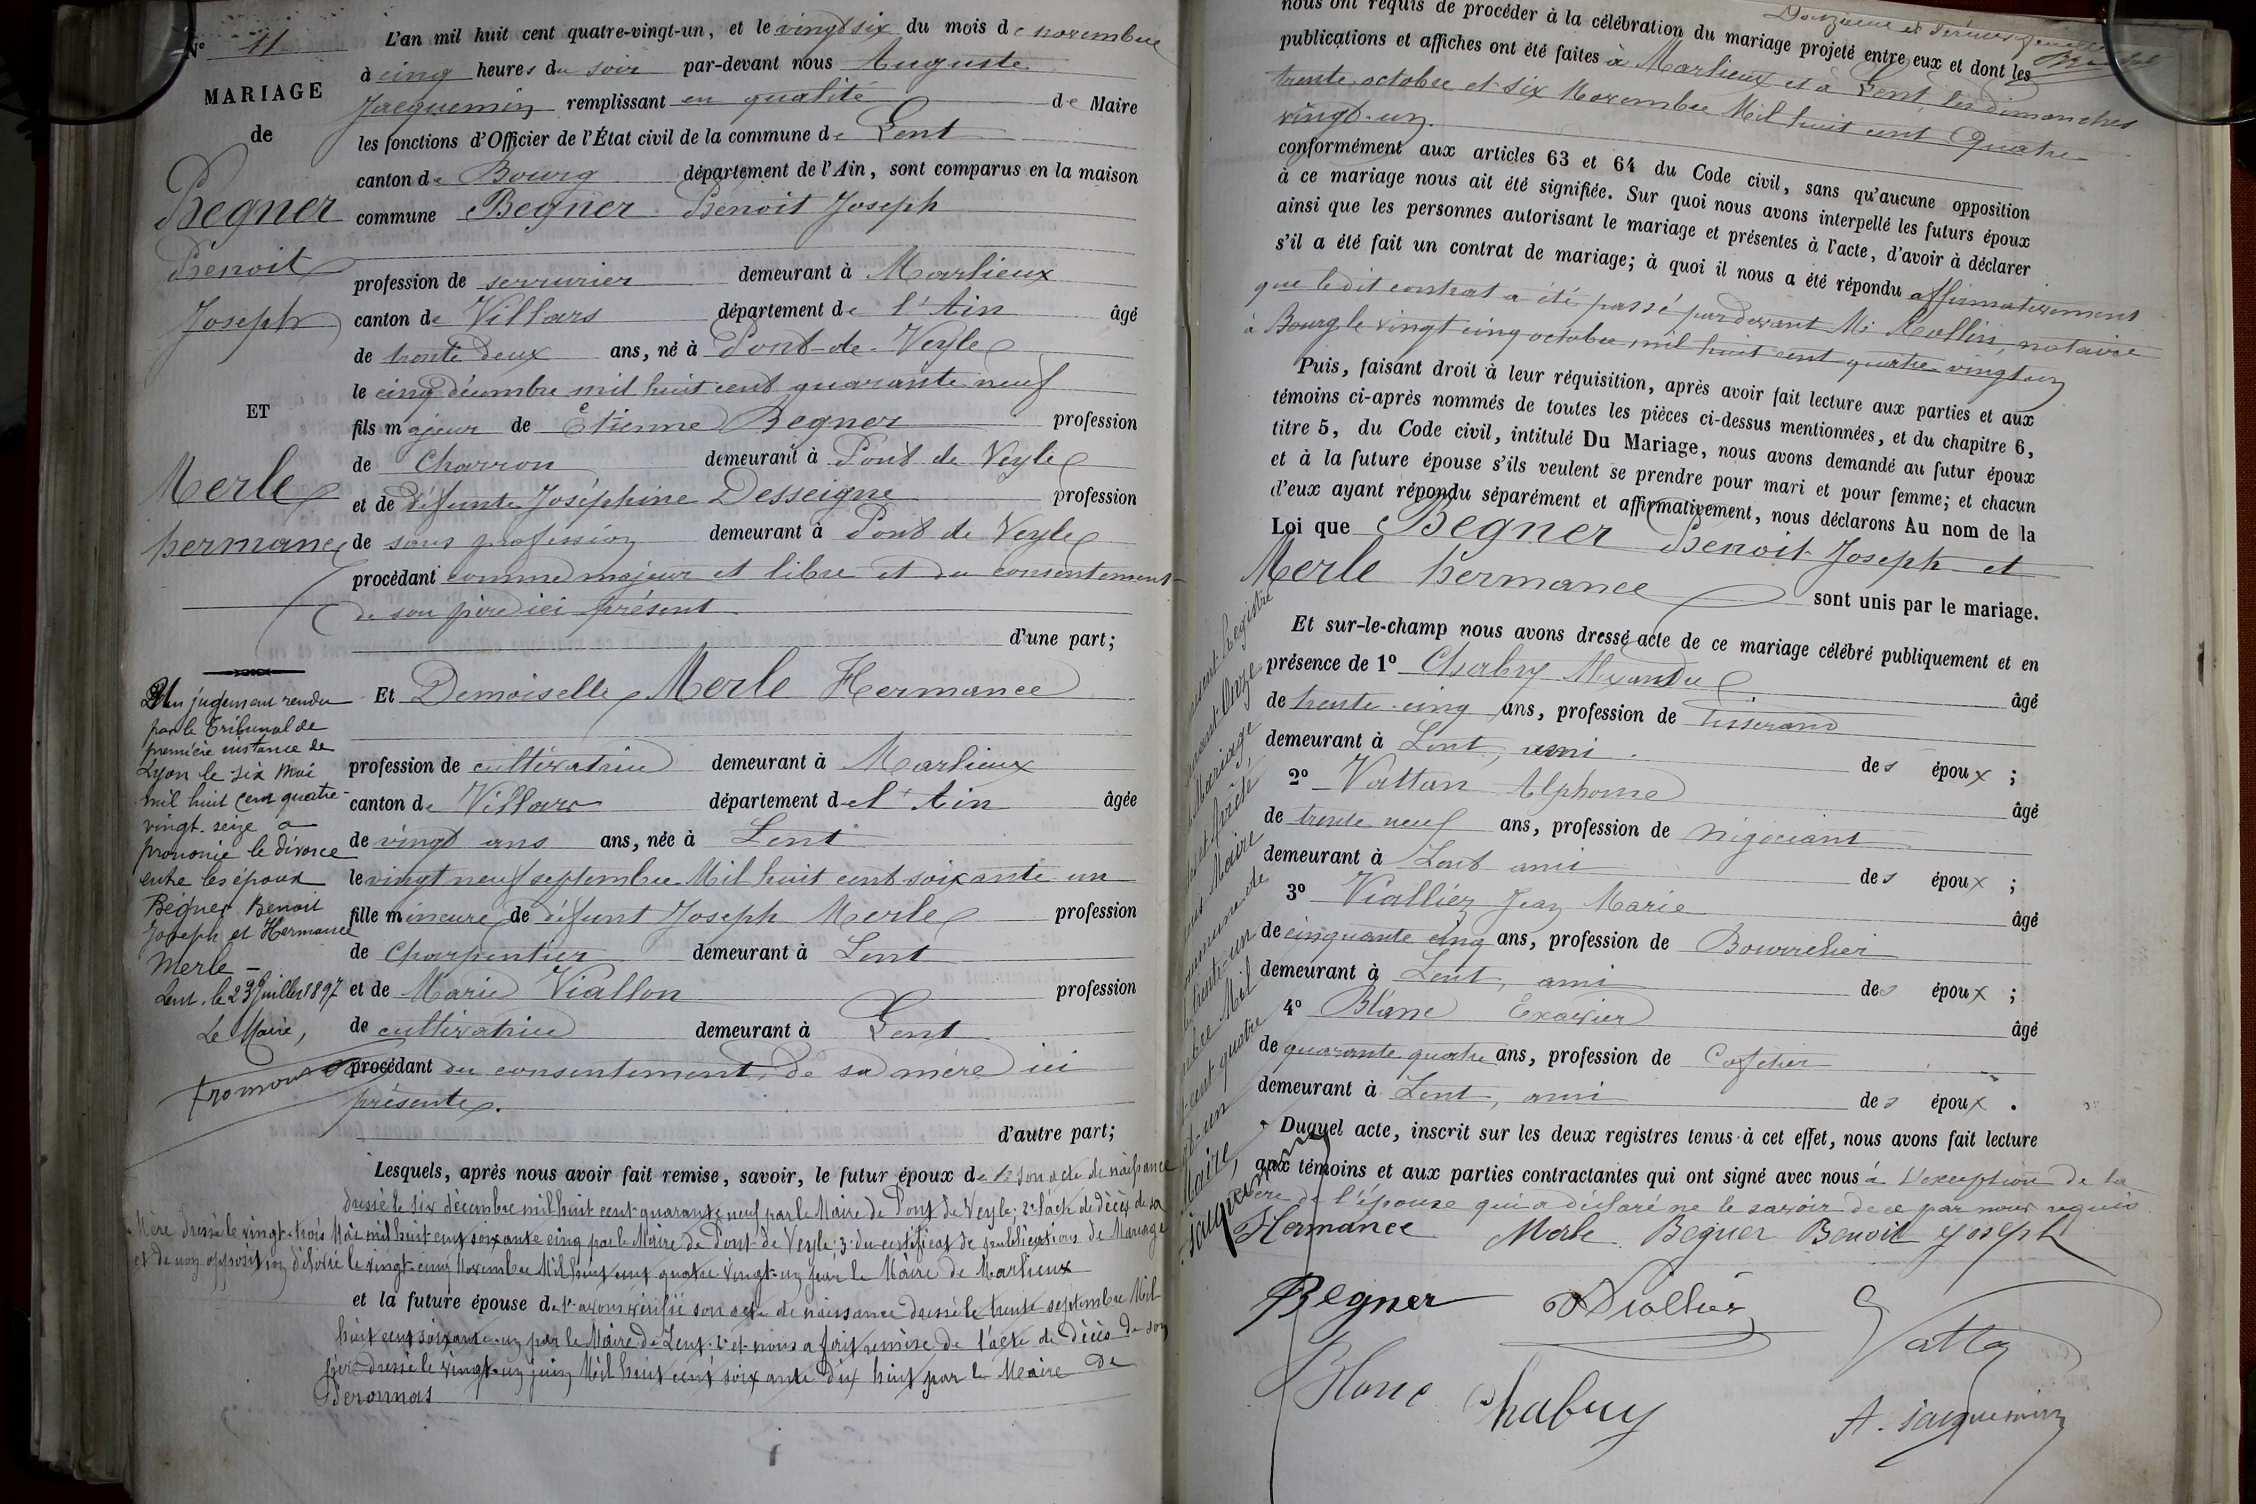 N° 11
MARIAGE
de
Begner
Benoit
Joseph
ET
Merle
hermance
Un jugement rendu
par le Tribunal de
première instance de
Lyon le six mai
mil huit cent quatre-
vingt-seize a
prononcé le divorce
entre les époux
Begner Benoit
Joseph et Hermance
Merle —
Lent, le 23 Juillet 1897
Le Maire,
L'an mil huit cent quatre-vingt-un, et le vingt six du mois de novembre
à cinq heures du soir par-devant nous Auguste
Jacquemin remplissant en qualité de Maire
les fonctions d'Officier de l'État civil de la commune de Lent
canton de Bourg département de l'Ain, sont comparus en la maison
commune Begner Benoit Joseph
profession de serrurier demeurant à Marlieux
canton de Villars département de l'Ain âgé
de trente deux ans, né à Pont-de-Veyle
le cinq décembre mil huit cent quarante neuf
fils majeur de Etienne Begner profession
de Charron demeurant à Pont de Veyle
et de défunte Joséphine Desseigne profession
de sans profession demeurant à Pont de Veyle
procédant comme majeur et libre et du consentement
de son père ici présent
d'une part;
Et Demoiselle Merle Hermance
profession de cultivatrice demeurant à Marlieux
canton de Villars département de l'Ain âgée
de vingt ans ans, née à Lent
le vingt neuf septembre Mil huit cent soixante un
fille mineure de défunt Joseph Merle profession
de Charpentier demeurant à Lent
et de Marie Viallon profession
de cultivatrice demeurant à Lent
procédant du consentement de sa mère ici
présente.
d'autre part;
Lesquels, après nous avoir fait remise, savoir, le futur époux de 1° son acte de naissance
dressé le six décembre mil huit cent quarante neuf par le Maire de Pont de Veyle; 2° l'acte de décès de sa
Mère dressé le vingt-trois Mai mil huit cent soixante cinq par le Maire de Pont-de Veyle; 3° du certificat de publications de Mariage
et de non opposition délivré le vingt-cinq Novembre Mil huit cent quatre vingt-un par le Maire de Marlieux
et la future épouse de 1° avons vérifié son acte de naissance dressé le trente septembre Mil
huit cent soixante-un par le Maire de Lent: 2° et nous a fait remise de l'acte de décès de son
père dressé le vingt-un juin Mil huit cent soixante dix huit par le Maire de
Péronnas
nous ont requis de procéder à la célébration du mariage projeté entre eux et dont les
publications et affiches ont été faites à Marlieux et à Lent, les dimanches
trente octobre et six Novembre Mil huit cent Quatre
vingt-un.
conformément aux articles 63 et 64 du Code civil, sans qu'aucune opposition
à ce mariage nous ait été signifiée. Sur quoi nous avons interpellé les futurs époux
ainsi que les personnes autorisant le mariage et présentes à l'acte, d'avoir à déclarer
s'il a été fait un contrat de mariage; à quoi il nous a été répondu affirmativement
que ledit contrat a été passé pardevant Me Rollin, notaire
à Bourg le vingt cinq octobre mil huit cent quatre-vingt un
Puis, faisant droit à leur réquisition, après avoir fait lecture aux parties et aux
témoins ci-après nommés de toutes les pièces ci-dessus mentionnées, et du chapitre 6,
titre 5, du Code civil, intitulé Du Mariage, nous avons demandé au futur époux
et à la future épouse s'ils veulent se prendre pour mari et pour femme; et chacun
d'eux ayant répondu séparément et affirmativement, nous déclarons Au nom de la
Loi que Begner Benoit Joseph et
Merle hermance sont unis par le mariage.
Et sur-le-champ nous avons dressé acte de ce mariage célébré publiquement et en
présence de 1° Chabry Alexandre âgé
de trente-cinq ans, profession de Tisserand
demeurant à Lent, ami des époux;
2° Vattan Alphonse âgé
de trente neuf ans, profession de Négociant
demeurant à Lent ami des époux;
3° Viallier Jean Marie âgé
de cinquante cinq ans, profession de Bourrelier
demeurant à Lent, ami des époux;
4° Blanc Exavier âgé
de quarante quatre ans, profession de Cafetier
demeurant à Lent, ami des époux.
Duquel acte, inscrit sur les deux registres tenus à cet effet, nous avons fait lecture
aux témoins et aux parties contractantes qui ont signé avec nous à l'exception de la
mère de l'épouse qui a déclaré ne le savoir de ce par nous requis
Hermance Merle Begner Benoit Joseph
Begner Viallier Vattan
Blanc Chabry A. Jacquemin